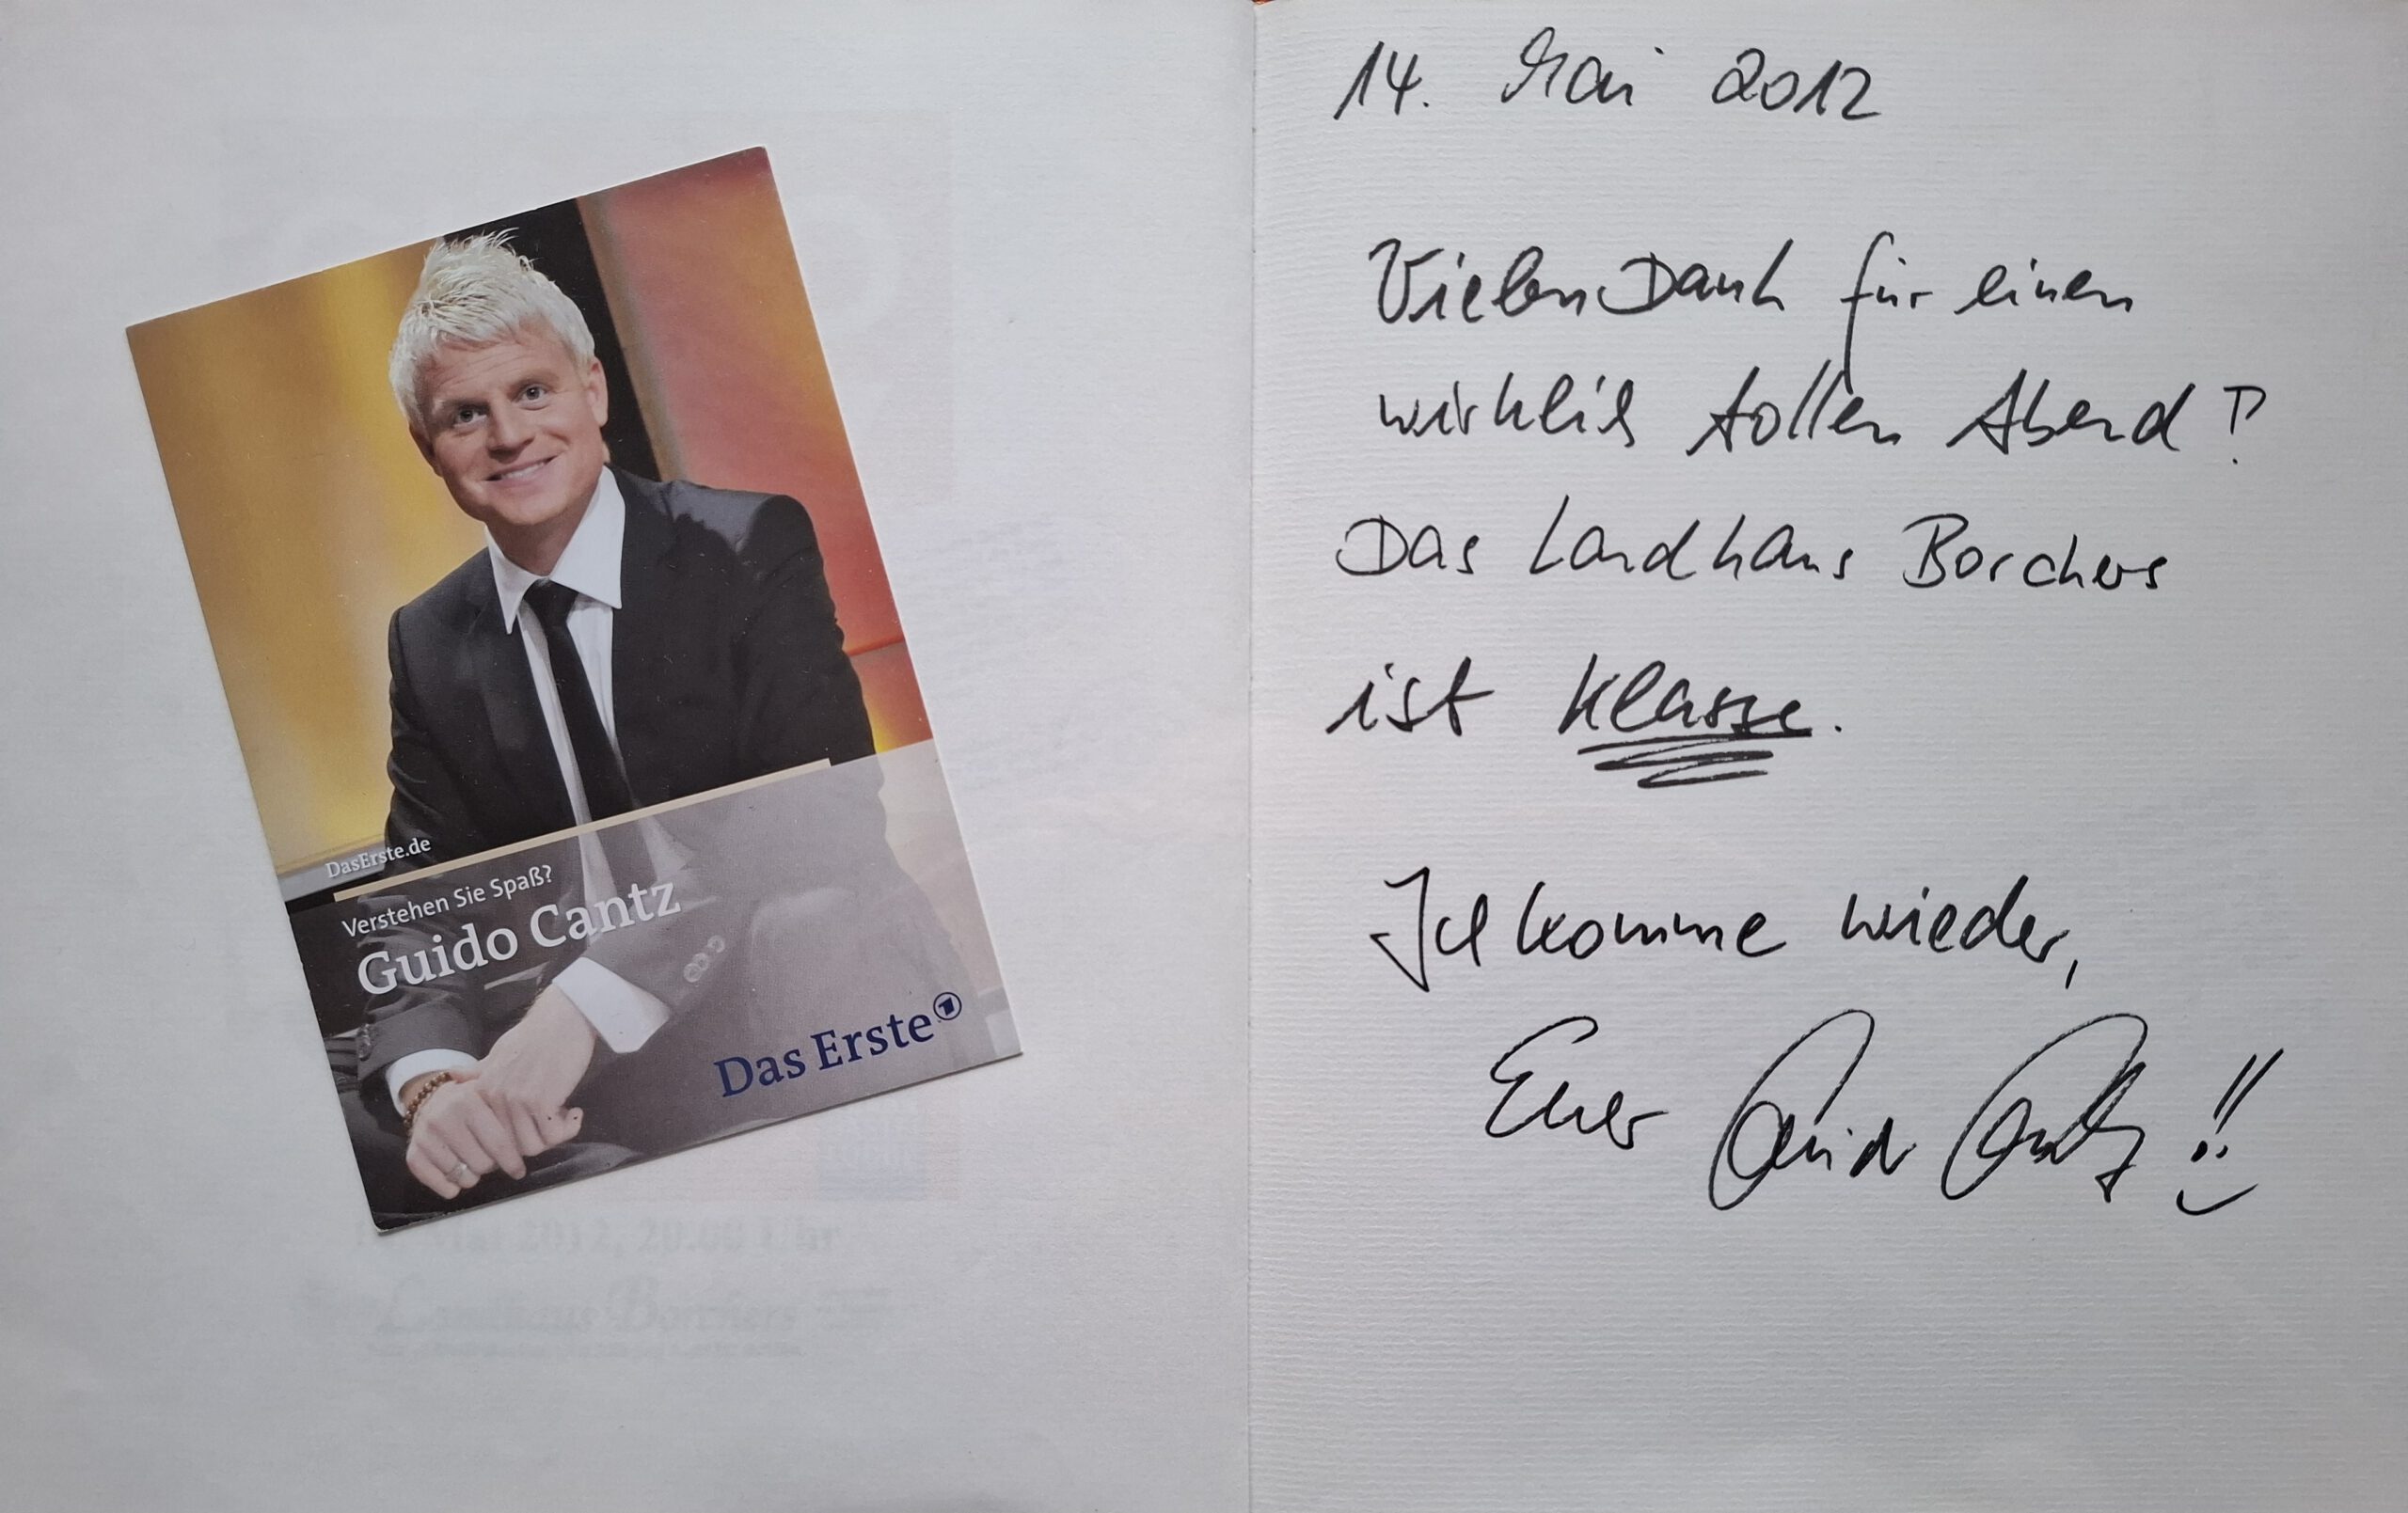 DasErste.de
Verstehen Sie Spaß?
Guido Cantz
Das Erste
Mai 2012, 20.00 Uhr
Landhaus Borchers
14. Mai 2012
Vielen Dank für einen
wirklich tollen Abend!!
Das Landhaus Borchers
ist klasse.
Ich komme wieder,
Euer Guido Cantz!!